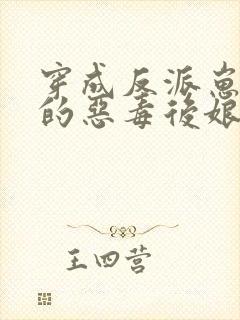 穿成反派崽
的惡毒後娘
王四营